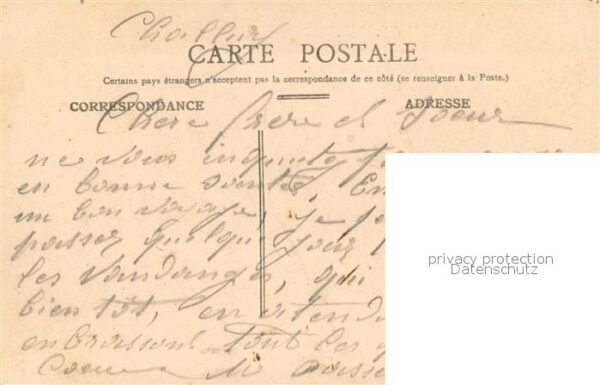 CARTE POSTALE
Certains pays étrangers n'acceptent pas la correspondance de ce côté (se renseigner à la Poste.)
CORRESPONDANCE
ADRESSE
Chere frere et soeur
ne vous inquiete
en bonne sante, En
un bon voyage, je
passer quelque jour
les Vandanges, qui
bientôt, en attenda
embrassons tout les
privacy protection
Datenschutz